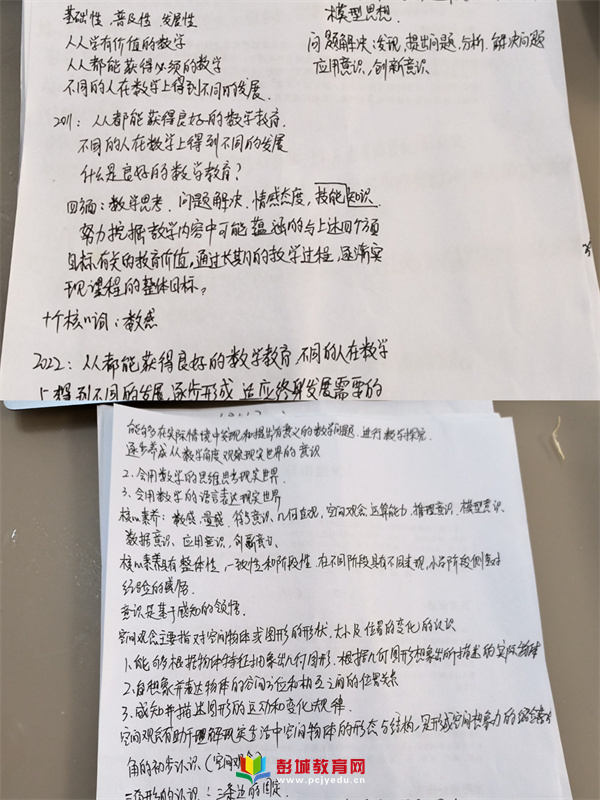 基础性,普及性 发展性
人人学有价值的数学
人人都能获得必须的数学
不同的人在数学上得到不同的发展.
模型思想.
问题解决:发现,提出问题,分析.解决问题
应用意识,创新意识
2011:人人都能获得良好的数学教育.
不同的人在数学上得到不同的发展
什么是良好的数学教育?
四个面:数学思考.问题解决.情感态度,技能知识.
努力挖掘教学内容中可能蕴涵的与上述四个方面
目标有关的教育价值,通过长期的教学过程,逐渐实
现课程的整体目标。
十个核心词:数感
2022:人人都能获得良好的数学教育,不同的人在数学
上得到不同的发展,逐步形成适应终身发展需要的
能够在实际情境中发现和提出有意义的数学问题.进行数学探究.
逐步养成从数学角度观察现实世界的意识
2.会用数学的思维思考现实世界.
3.会用数学的语言表达现实世界
核心素养:数感,量感,符号意识,几何直观,空间观念,运算能力,推理意识,模型意识、
数据意识、应用意识,创新意识.
核心素养具有整体性,一致性和阶段性.在不同阶段具有不同表现,小学阶段侧重对
经验的感悟.
意识是基于感知的领悟.
空间观念主要指对空间物体或图形的形状,大小及位置的变化的认识
1.能够根据物体特征抽象出几何图形.根据几何图形想象出所描述的实际物体
2.自想象并表达物体的空间方位和相互之间的位置关系
3.感知并描述图形的运动和变化规律.
空间观念有助于理解现实生活中空间物体的形态与结构,是形成空间想象力的经验基础
角的初步认识(空间观念)
三角形的认识:三条边的固定.
彭城教育网
www.pcjyedu.cn